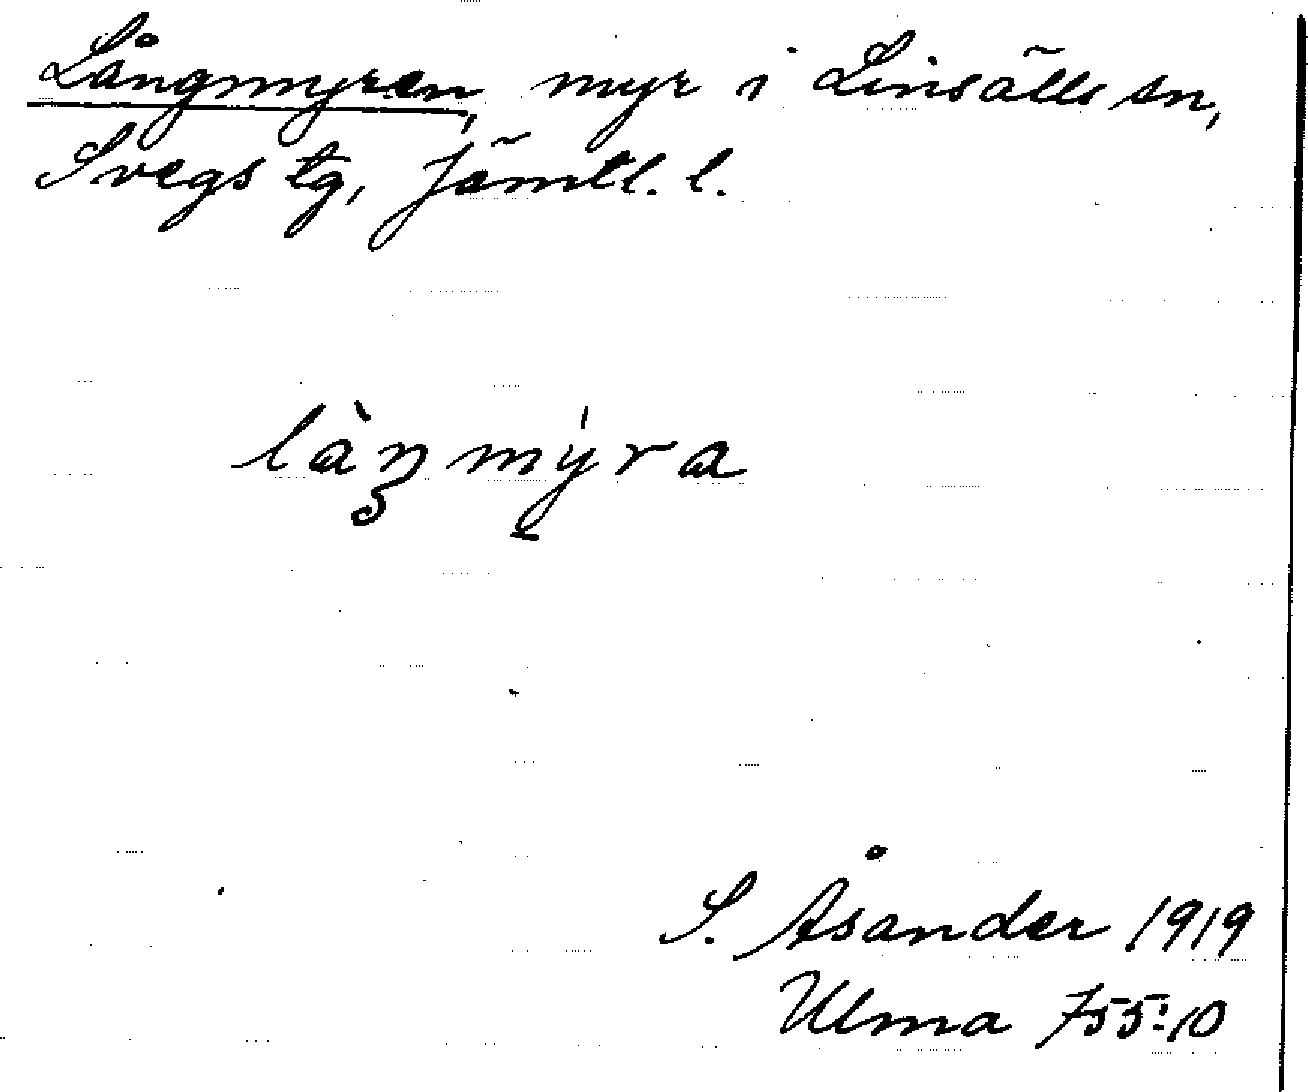 Långmyren, myr i Linsälls sn,
Svegs tg, Jämtl. l.
làŋmý̠ra
S. Åsander 1919
Ulma 755:10